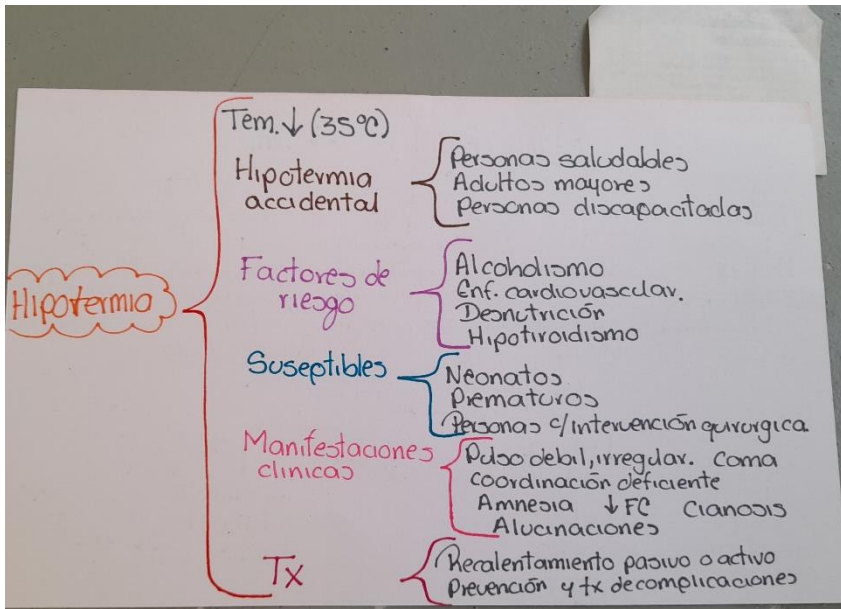 Hipotermia
Tem. ↓ (35°C)
Hipotermia
accidental
Personas saludables
Adultos mayores
Personas discapacitadas
Factores de
riesgo
Alcoholismo
Enf. cardiovascular.
Desnutrición
Hipotiroidismo
Suseptibles
Neonatos
Prematuros
Personas c/intervención quirurgica.
Manifestaciones
clinicas
Pulso debil, irregular. Coma
coordinación deficiente
Amnesia ↓ FC Cianosis
Alucinaciones
Tx
Recalentamiento pasivo o activo
Prevención y tx de complicaciones